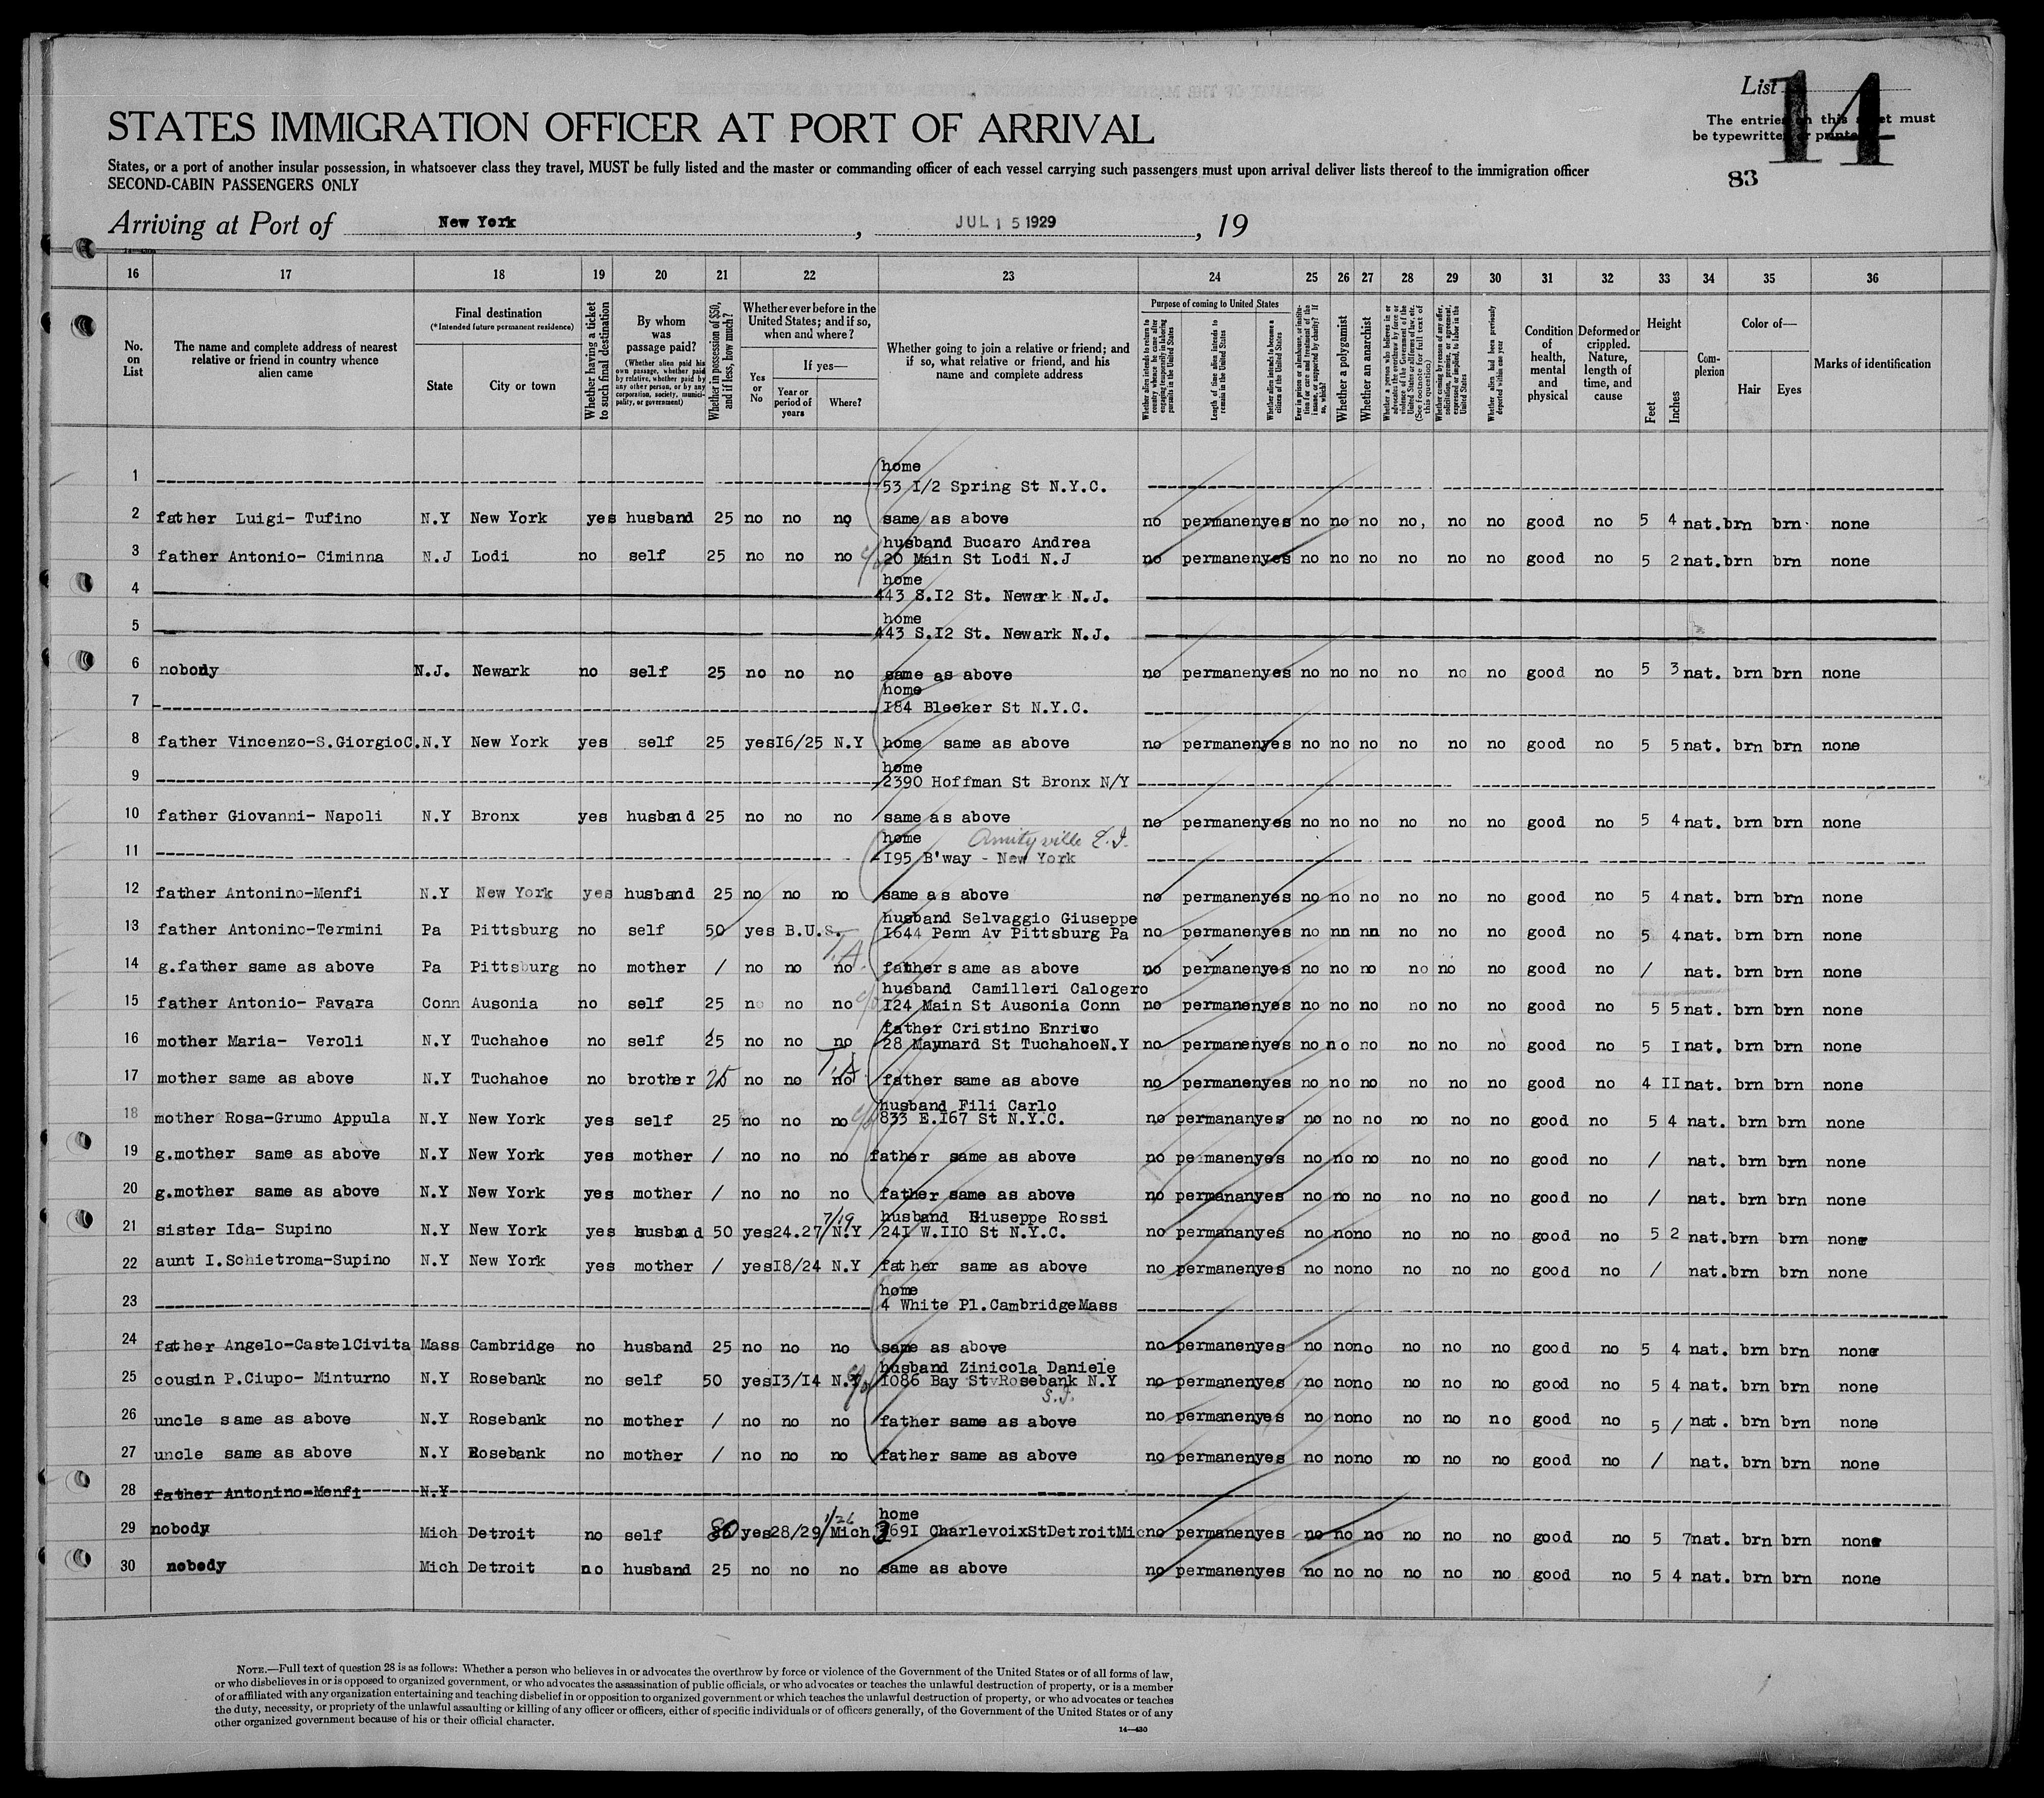 List 14
The entries on this sheet must
be typewritten or printed
83
STATES IMMIGRATION OFFICER AT PORT OF ARRIVAL
States, or a port of another insular possession, in whatsoever class they travel, MUST be fully listed and the master or commanding officer of each vessel carrying such passengers must upon arrival deliver lists thereof to the immigration officer
SECOND-CABIN PASSENGERS ONLY
Arriving at Port of New York , JUL 15 1929 , 19
16 17 18 19 20 21 22 23 24 25 26 27 28 29 30 31 32 33 34 35 36
No. on List
The name and complete address of nearest relative or friend in country whence alien came
Final destination
(*Intended future permanent residence)
State
City or town
Whether having a ticket to such final destination
By whom was passage paid?
(Whether alien paid his own passage, whether paid by relative, whether paid by any other person, or by any corporation, society, municipality, or government)
Whether in possession of $50, and if less, how much?
Whether ever before in the United States; and if so, when and where?
Yes or No
If yes—
Year or period of years
Where?
Whether going to join a relative or friend; and if so, what relative or friend, and his name and complete address
Purpose of coming to United States
Whether alien intends to return to country whence he came after engaging temporarily in laboring pursuits in the United States
Length of time alien intends to remain in the United States
Whether alien intends to become a citizen of the United States
Ever in prison or almshouse, or institution for care and treatment of the insane, or supported by charity? If so, which?
Whether a polygamist
Whether an anarchist
Whether a person who believes in or advocates the overthrow by force or violence of the Government of the United States or all forms of law, etc. (See footnote for full text of this question)
Whether coming by reason of any offer, solicitation, promise, or agreement, expressed or implied, to labor in the United States
Whether alien had been previously deported within one year
Condition of health, mental and physical
Deformed or crippled. Nature, length of time, and cause
Height
Feet
Inches
Complexion
Color of—
Hair
Eyes
Marks of identification
1 home
53 I/2 Spring St N.Y.C.
2 father Luigi- Tufino N.Y New York yes husband 25 no no no same as above no permanenyes no no no no, no no good no 5 4 nat. brn brn. none
3 father Antonio- Ciminna N.J Lodi no self 25 no no no husband Bucaro Andrea
20 Main St Lodi N.J no permanenyes no no no no no no good no 5 2 nat. brn brn none
4 home
443 S.I2 St. Newark N.J.
5 home
443 S.I2 St. Newark N.J.
6 nobody N.J. Newark no self 25 no no no same as above no permanenyes no no no no no no good no 5 3 nat. brn brn none
7 home
I84 Bleeker St N.Y.C.
8 father Vincenzo-S.GiorgioC. N.Y New York yes self 25 yes I6/25 N.Y home same as above no permanenyes no no no no no no good no 5 5 nat. brn brn none
9 home
2390 Hoffman St Bronx N/Y
10 father Giovanni- Napoli N.Y Bronx yes husband 25 no no no same as above no permanenyes no no no no no no good no 5 4 nat. brn brn none
11 home Amityville L.I.
I95 B'way - New York
12 father Antonino-Menfi N.Y New York yes husband 25 no no no same as above no permanenyes no no no no no no good no 5 4 nat. brn brn none
13 father Antonino-Termini Pa Pittsburg no self 50 yes B.U.S. husband Selvaggio Giuseppe
I644 Penn Av Pittsburg Pa no permanenyes no nn nn no no no good no 5 4 nat. brn brn none
14 g.father same as above Pa Pittsburg no mother / no no no T.A. father same as above no permanenyes no no no no no no good no / nat. brn brn none
15 father Antonio- Favara Conn Ausonia no self 25 no no no husband Camilleri Calogero
I24 Main St Ausonia Conn no permanenyes no no no no no no good no 5 5 nat. brn brn none
16 mother Maria- Veroli N.Y Tuchahoe no self 25 no no no father Cristino Enrico
28 Maynard St TuchahoeN.Y no permanenyes no no no no no no good no 5 I nat. brn brn none
17 mother same as above N.Y Tuchahoe no brother 25 no no no T.A. father same as above no permanenyes no no no no no no good no 4 II nat. brn brn none
18 mother Rosa-Grumo Appula N.Y New York yes self 25 no no no husband Fili Carlo
833 E.I67 St N.Y.C. no permananyes no no no no no no good no 5 4 nat. brn brn none
19 g.mother same as above N.Y New York yes mother / no no no father same as above no pe manenyes no no no no no no good no / nat. brn brn none
20 g.mother same as above N.Y New York yes mother / no no no father same as above no permananyes no no no no no no good no / nat. brn brn none
21 sister Ida- Supino N.Y New York yes husband 50 yes 24.27 7/19 N.Y husband Giuseppe Rossi
24I W.II0 St N.Y.C. no permananyes no no no no no no good no 5 2 nat. brn brn none
22 aunt I.Schietroma-Supino N.Y New York yes mother / yes I8/24 N.Y father same as above no permanenyes no no no no no no good no / nat. brn brn none
23 home
4 White Pl.CambridgeMass
24 father Angelo-CastelCivita Mass Cambridge no husband 25 no no no same as above no permanenyes no no no no no no good no 5 4 nat. brn brn none
25 cousin P.Ciupo- Minturno N.Y Rosebank no self 50 yes I3/I4 N.Y husband Zinicola Daniele
I086 Bay St Rosebank N.Y S.I. no permanenyes no no no no no no good no 5 4 nat. brn brn none
26 uncle same as above N.Y Rosebank no mother / no no no father same as above no permanenyes no no no no no no good no 5 / nat. brn brn none
27 uncle same as above N.Y Rosebank no mother / no no no father same as above no permanenyes no no no no no no good no / nat. brn brn none
28 father Antonino-Menfi N.Y
29 nobody Mich Detroit no self 80 yes 28/29 1/26 Mich home
3691 CharlevoixStDetroitMic no permanenyes no no no no no no good no 5 7 nat. brn brn none
30 nobody Mich Detroit no husband 25 no no no same as above no permanenyes no no no no no no good no 5 4 nat. brn brn none
NOTE.—Full text of question 28 is as follows: Whether a person who believes in or advocates the overthrow by force or violence of the Government of the United States or of all forms of law,
or who disbelieves in or is opposed to organized government, or who advocates the assassination of public officials, or who advocates or teaches the unlawful destruction of property, or is a member
of or affiliated with any organization entertaining and teaching disbelief in or opposition to organized government or which teaches the unlawful destruction of property, or who advocates or teaches
the duty, necessity, or propriety of the unlawful assaulting or killing of any officer or officers, either of specific individuals or of officers generally, of the Government of the United States or of any
other organized government because of his or their official character.
14—430